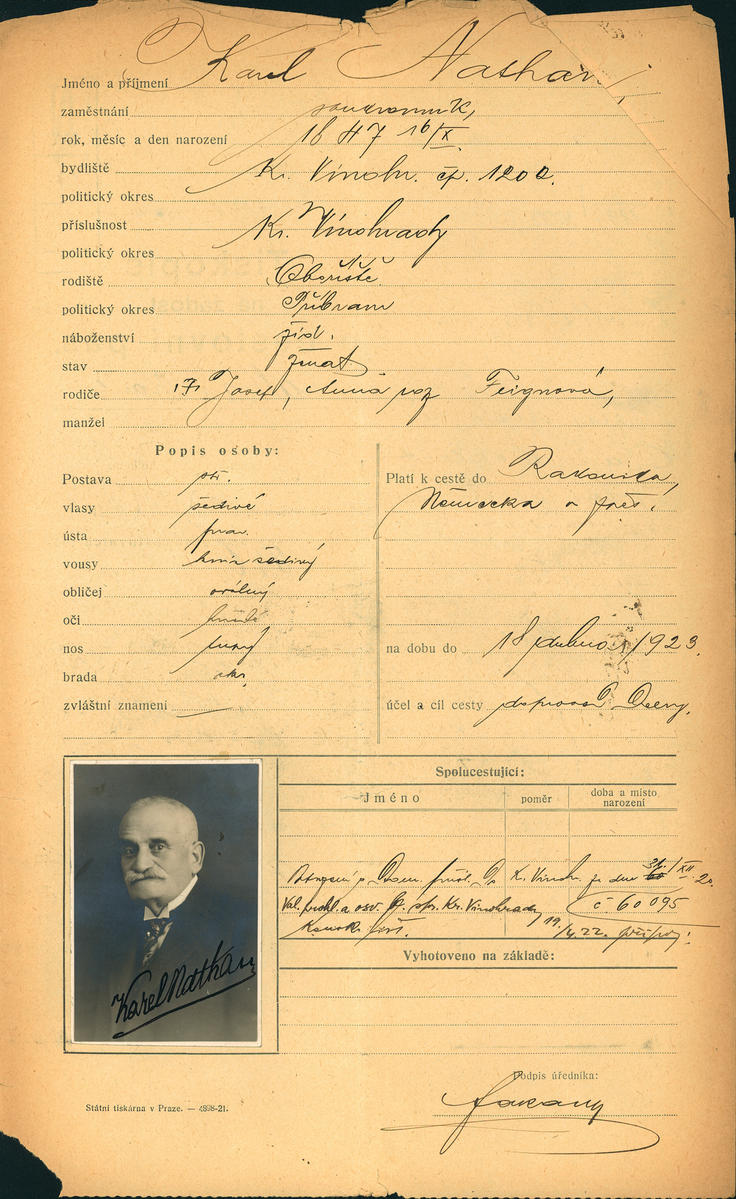 Jméno a příjmení Karel Nathan,
zaměstnání soukromník,
rok, měsíc a den narození 1847 16/X.
bydliště Kr. Vinohr. čp. 1200.
politický okres
příslušnost Kr. Vinohrady
politický okres
rodiště Obořiště
politický okres Příbram
náboženství žid.
stav ženat
rodiče Josef, Anna roz Feignová,
manžel
Popis osoby:
Postava stř.
vlasy šedivé
ústa prav.
vousy knír šedivý
obličej oválný
oči hnědé
nos
brada
zvláštní znamení —
Platí k cestě do Rakouska,
Německa a
na dobu do 18 dubna 1923.
účel a cíl cesty doprovod Dcery.
Spolucestující:
Jméno poměr doba a místo narození
K. Vinohr. ze dne 31./XII. 20.
a osv. Kr. Vinohrady č 60095
19/4.22.
Karel Nathan
Vyhotoveno na základě:
Podpis úředníka:
Státní tiskárna v Praze. — 4898-21.